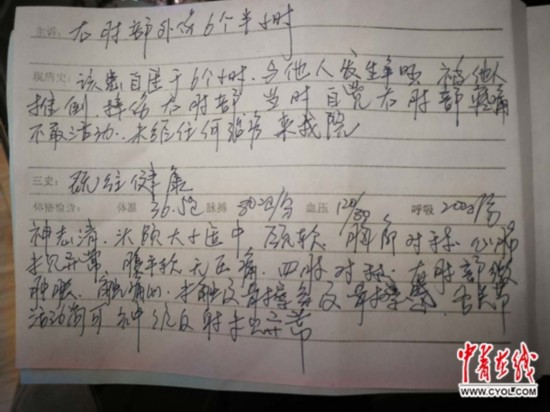 主诉: 右肘部外伤6个半小时
现病史: 该患自述于6个小时.与他人发生争吵 被他人
推倒摔伤右肘部 当时自觉右肘部疼痛
不敢活动.未经任何治疗来我院
三史: 既往健康
体格检查: 体温 36.5℃ 脉搏 80次/分 血压 120/80 呼吸 20次/分
神志清.头颅大小适中 颈软.胸廓对称.心肺
未见异常 腹平软无压痛.四肢对称.右肘部
肿胀. 未触及骨擦
活动尚可 神经反射未见异常
中青在线
www.CYOL.com